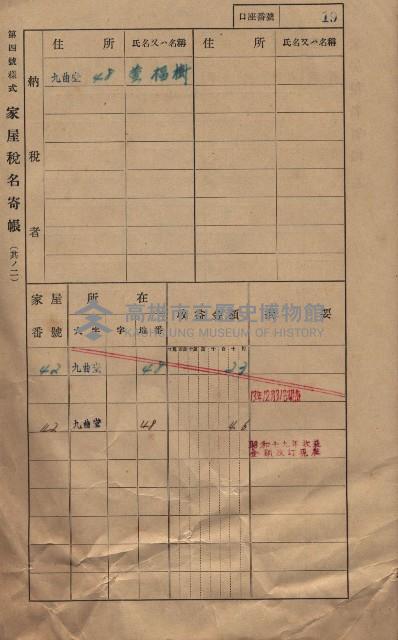 口座番號 19
第四號樣式 家屋稅名寄帳 (其ノ二)
納稅者
住所 氏名又ハ名稱 住所 氏名又ハ名稱
九曲堂 48 黄福樹
家屋番號 所在 收益金額 摘要
大字 字 地番
42 九曲堂 48 23
42 九曲堂 48 46
昭和十九年收益
金額改訂
高雄市立歷史博物館
KAOHSIUNG MUSEUM OF HISTORY